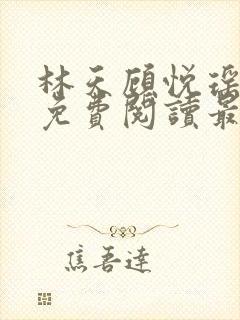 林天顾悦瑶
免費閱讀最
焦吾達